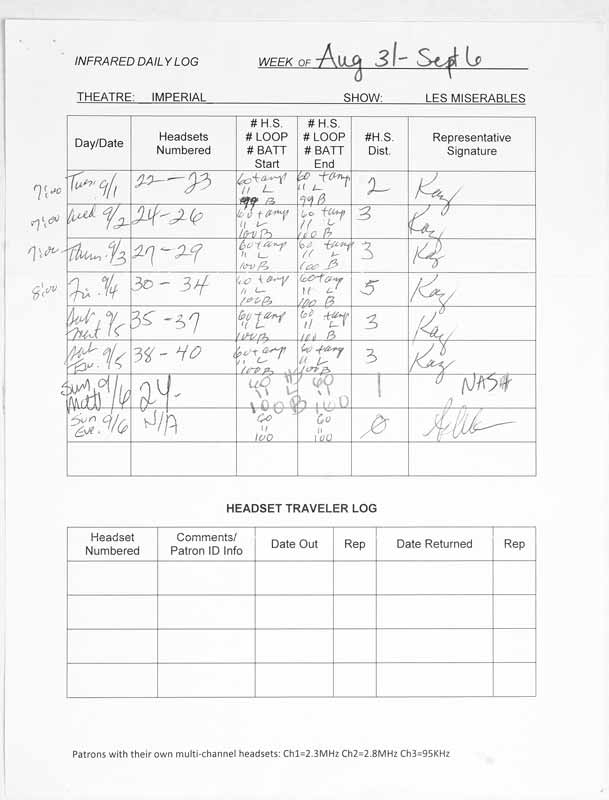 INFRARED DAILY LOG WEEK OF Aug 31 - Sept 6
THEATRE: IMPERIAL SHOW: LES MISERABLES
Day/Date
Headsets
Numbered
# H.S.
# LOOP
# BATT
Start
# H.S.
# LOOP
# BATT
End
#H.S.
Dist.
Representative
Signature
7:00 Tues 9/1 22-23
60 + amp
11 L
99 B
60 + amp
11 L
99 B
2 Kay
7:00 Wed 9/2 24-26
60 + amp
11 L
100 B
60 + amp
11 L
100 B
3 Kay
7:00 Thurs. 9/3 27-29
60 + amp
11 L
100 B
60 + amp
11 L
100 B
3 Kay
8:00 Fri. 9/4 30-34
60 + amp
11 L
100 B
60 + amp
11 L
100 B
5 Kay
Sat
9/5 35-37
60 + amp
11 L
100 B
60 + amp
11 L
100 B
3 Kay
Sat
Eve. 9/5 38-40
60 + amp
11 L
100 B
60 + amp
11 L
100 B
3 Kay
Sun. 9/6
Matt 24-
60 H 60
11 L 11
100 B 100
1 NASH
Sun 9/6
Eve. N/A
60
11
100
60
11
100
0
HEADSET TRAVELER LOG
Headset
Numbered
Comments/
Patron ID Info
Date Out
Rep
Date Returned
Rep
Patrons with their own multi-channel headsets: Ch1=2.3MHz Ch2=2.8MHz Ch3=95KHz